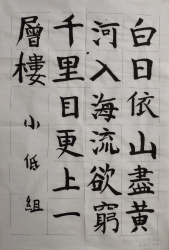 白日依山盡黃
河入海流欲窮
千里目更上一
層樓
小低組